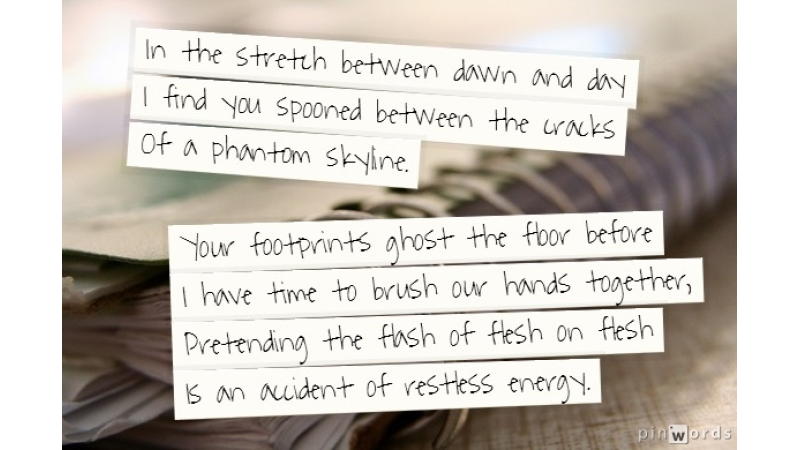 In the stretch between dawn and day
I find you spooned between the cracks
Of a phantom skyline.
Your footprints ghost the floor before
I have time to brush our hands together,
Pretending the flash of flesh on flesh
Is an accident of restless energy.
pinwords